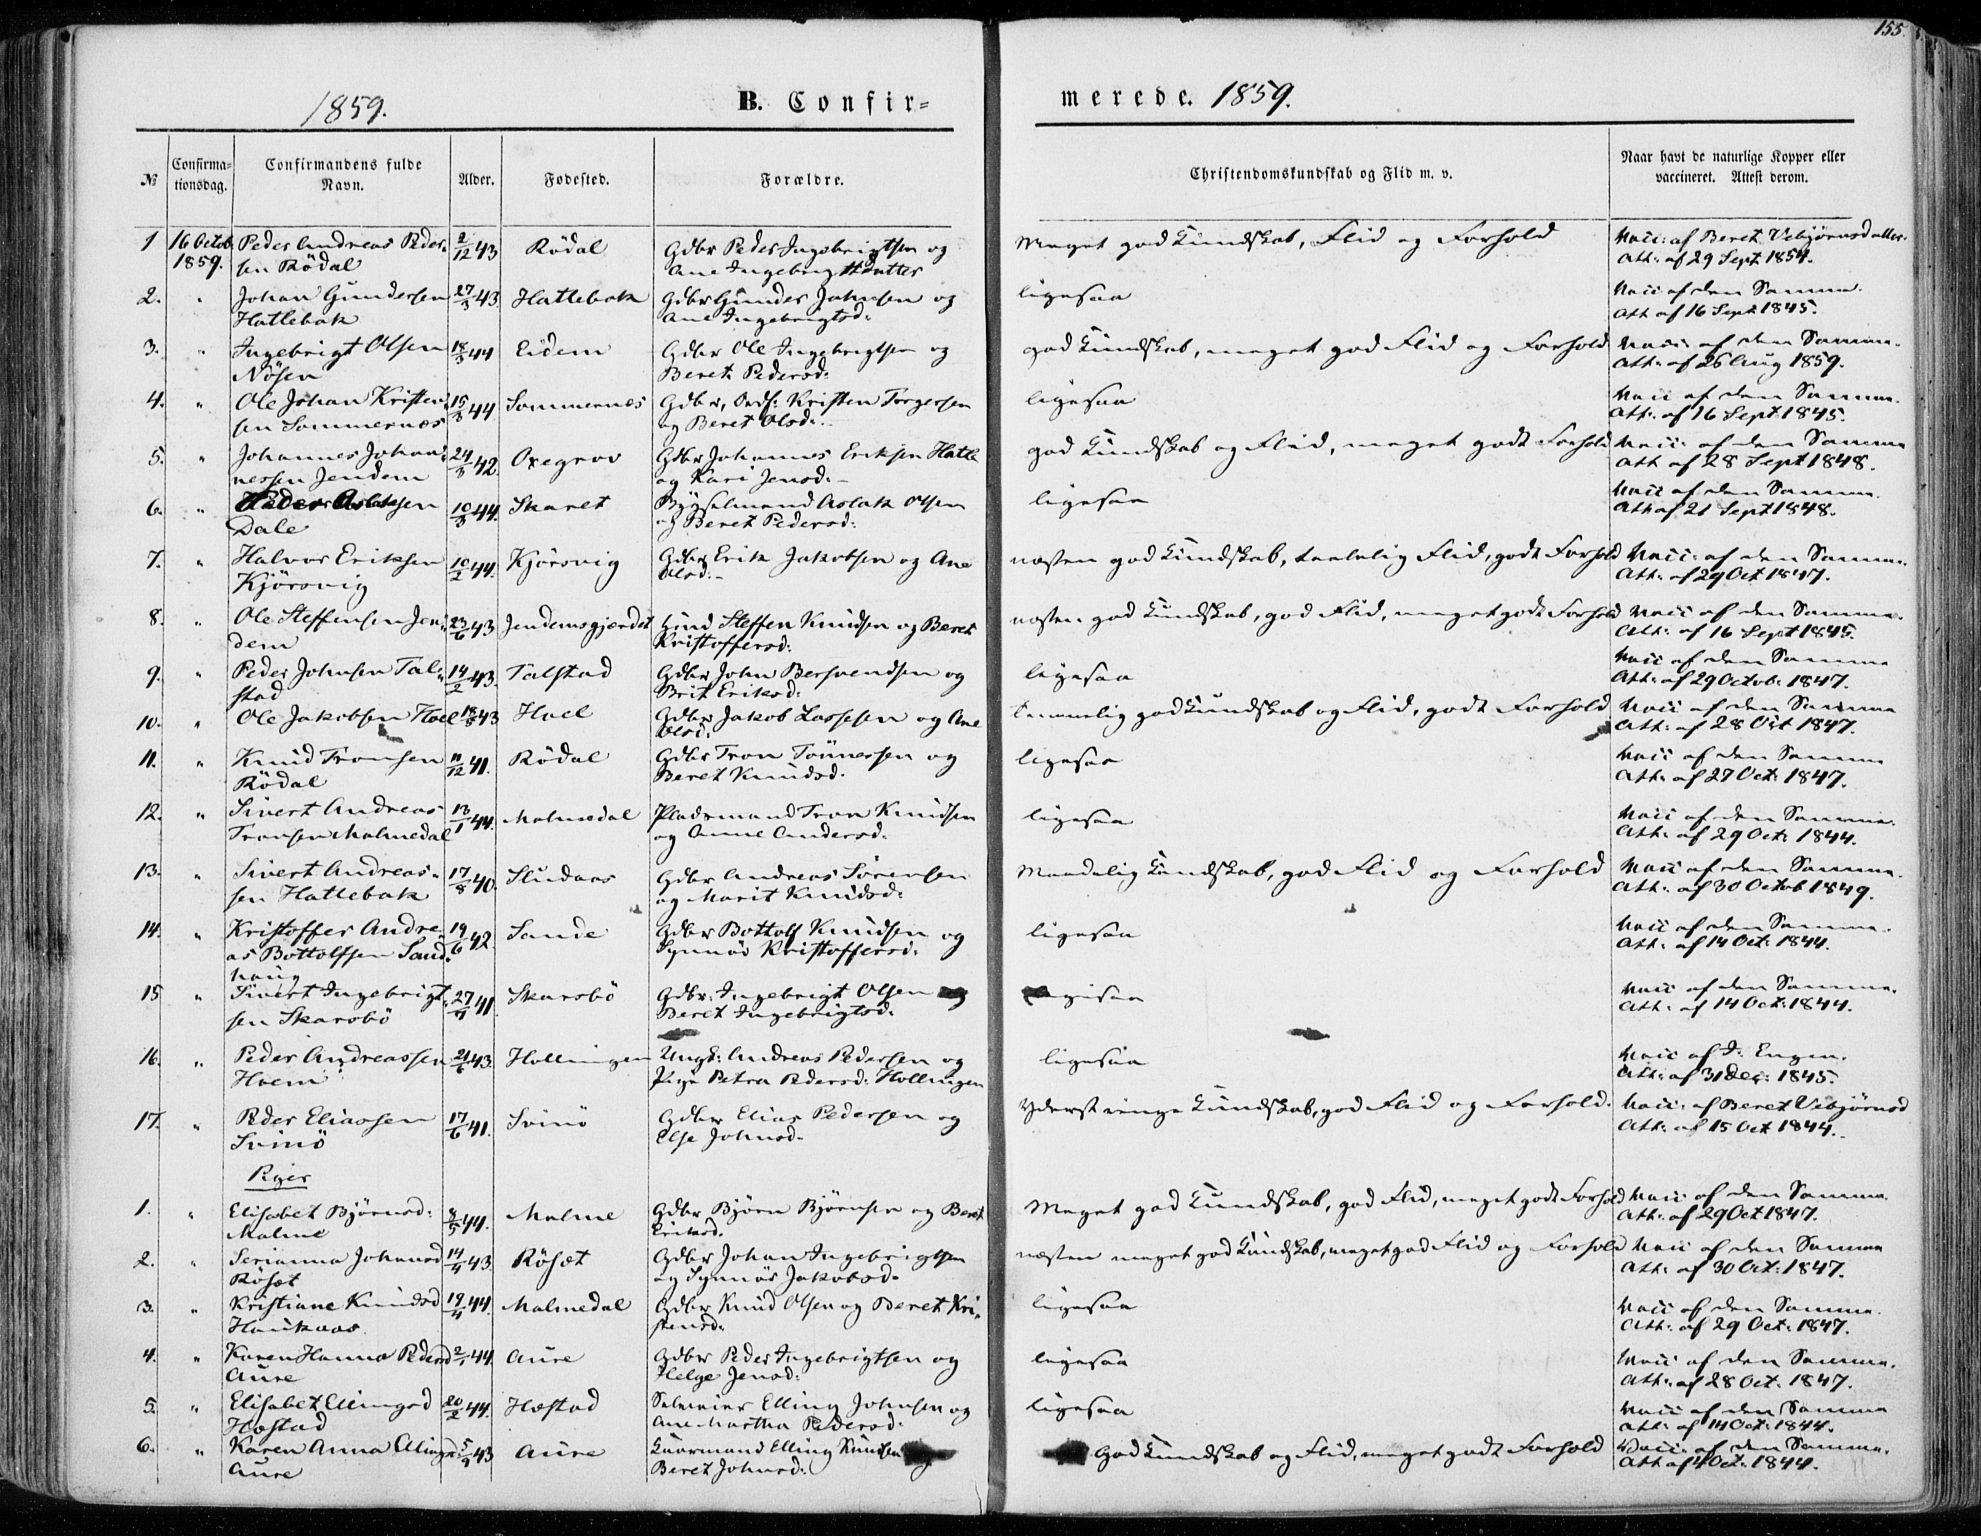 155.
1859. B. Confir=
merede. 1859.
№ Confirma=tionsdag. Confirmandens fulde Navn. Alder. Fødested. Forældre. Christendomskundskab og Flid m. v. Naar havt de naturlige Kopper eller vaccineret. Attest derom.
1 16 Octob. Peder Andreas Peder- 2/12 43 Rödal Gdbr Peder Ingebrigtsen og Meget god Kundskab, Flid og Forhold Vacc: af Beret Vebjørnsdatter.
1859. sen Rödal Ane Ingebrigtsdatter Att: af 29 Sept 1854.
2. " Johan Gundersen 27/3 43. Hatlebak Gdbr Gunder Johnsen og ligesaa Vacc af den Samme.
Hatlebak Ane Ingebrigtsd: Att af 16 Sept 1845.
3. " Ingebrigt Olsen 18/3 44 Eidem Gdbr Ole Ingebrigtsen og god Kundskab, meget god Flid og Forhold Vacc: af den Samme.
Nösen Beret Pedersd: Att: af 26 Aug 1859.
4. " Ole Johan Kristen- 15/3 44 Sommernæs Gdbr, Kristen Torgersen ligesaa Vacc af den Samme.
sen Sommernæs og Beret Olsd: Att: af 16 Sept 1845.
5. " Johannes Johan- 24/3 42 Oxegrov Gdbr Johannes Eriksen Hatle god Kundskab og Flid, meget godt Forhold Vacc: af den Samme
nessen Jendem og Kari Jensd: Att af 28 Sept 1848.
6. " Peder Aslaksen 10/3 44. Skaret Bygselmand Aslak Olsen ligesaa Vacc af den Samme.
Dale og Beret Pedersd: Att af 21 Sept 1848.
7. " Halvor Eriksen 10/2 44. Kjörsvig Gdbr Erik Jakobsen og Ane næsten god Kundskab, taalelig Flid, godt Forhold Vacc: af den Samme.
Kjörsvig Olsd: Att: af 29 Oct 1847.
8. " Ole Steffensen Jen- 23/6 43 Jendemsgjerdet Steffen Knudsen og Beret næsten god Kundskab, god Flid, meget godt Forhold Vacc af den Samme.
dem Kristoffersd: Att: af 16 Sept 1845.
9. " Peder Johnsen Tal- 14/2 43. Talstad Gdbr John Bersvendsen og ligesaa Vacc af den Samme
stad Brit Eriksd: Att: af 29 Octob: 1847.
10. " Ole Jakobsen Hoel 18/8 43 Hoel Gdbr Jakob Lassesen og Ane temmelig god Kundskab og Flid, godt Forhold Vacc af den Samme
Olsd: Att: af 28 Oct 1847.
11. " Knud Tronsen 11/12 41. Rödal Gdbr Tron Tönnesen og ligesaa Vacc af den Samme
Rödal Beret Knudsd. Att: af 27 Oct: 1847.
12. " Sivert Andreas 13/1 44. Malmedal Pladsmand Tron Knudsen ligesaa Vacc af den Samme.
Tronsen Malmedal og Anne Andersd. Att: af 29 Oct: 1844.
13. " Sivert Andreas- 17/8 40. Studaas Gdbr Andreas Sörensen Maadelig Kundskab, god Flid og Forhold Vacc af den Samme.
sen Hatlebak og Marit Knudsd: Att: af 30 Octob 1849.
14. " Kristoffer Andre- 19/6 42. Sande Gdbr Bottolf Knudsen og ligesaa Vacc af den Samme.
as Bottolfsen Sand- Synnöv Kristoffersd. Att: af 14 Oct: 1844.
haug
15 " Sivert Ingebrigt- 27/4 41 Skarsbö Gdbr: Ingebrigt Olsen og ligesaa Vacc af den Samme.
sen Skarsbö Beret Ingebrigtsd. Att: af 14 Oct: 1844.
16. " Peder Andreassen 21/6 43. Hollingen Ungk: Andreas Pedersen og ligesaa Vacc af J. Engen.
Hoem Pige Petra Pedersd: Hollingen Att: af 31 Dec: 1845.
17. " Peder Eliassen 17/6 41. Svinö Gdbr Elias Pedersen og Yderst ringe Kundskab, god Flid og Forhold. Vacc: af Beret Vebjørnsd
Svinö Else Johnsd. Att: af 15 Oct 1844.
Piger
1. " Elisabet Björnsd: 8/5 44. Malme Gdbr Björn Björnsen og Beret Meget god Kundskab, god Flid, meget godt Forhold Vacc: af den Samme.
Malme Eriksd. Att: af 29 Oct 1847.
2. " Serianna Johansd 14/4 43. Rösæt Gdbr Johan Ingebrigtsen næsten meget god Kundskab, meget god Flid og Forhold Vacc af den Samme
Rösæt og Synnöv Jakobsd. Att: af 30 Oct: 1847.
3. " Kristiane Knudsd 19/4 44. Malmedal Gdbr Knud Olsen og Beret Kri- ligesaa Vacc af den Samme.
Haukaas. stensd. Att: af 29 Oct: 1847.
4. " Karen Hanna Pedersd 2/1 44. Aure Gdbr Peder Ingebrigtsen og ligesaa Vacc af den Samme.
Aure Helge Jensd: Att: af 28 Oct. 1847.
5. " Elisabet Ellingsd 20/2 44. Hæstad Selveier Elling Johnsen og ligesaa Vacc af den Samme
Hæstad Ane Martha Pedersd. Att: af 14 Oct: 1844.
6. " Karen Anna Ellingsd 43 Aure Elling Knudsen og God Kundskab og Flid, meget godt Forhold Vacc: af den Samme.
Aure Beret Johnsd: Att af 4 Oct. 1844.